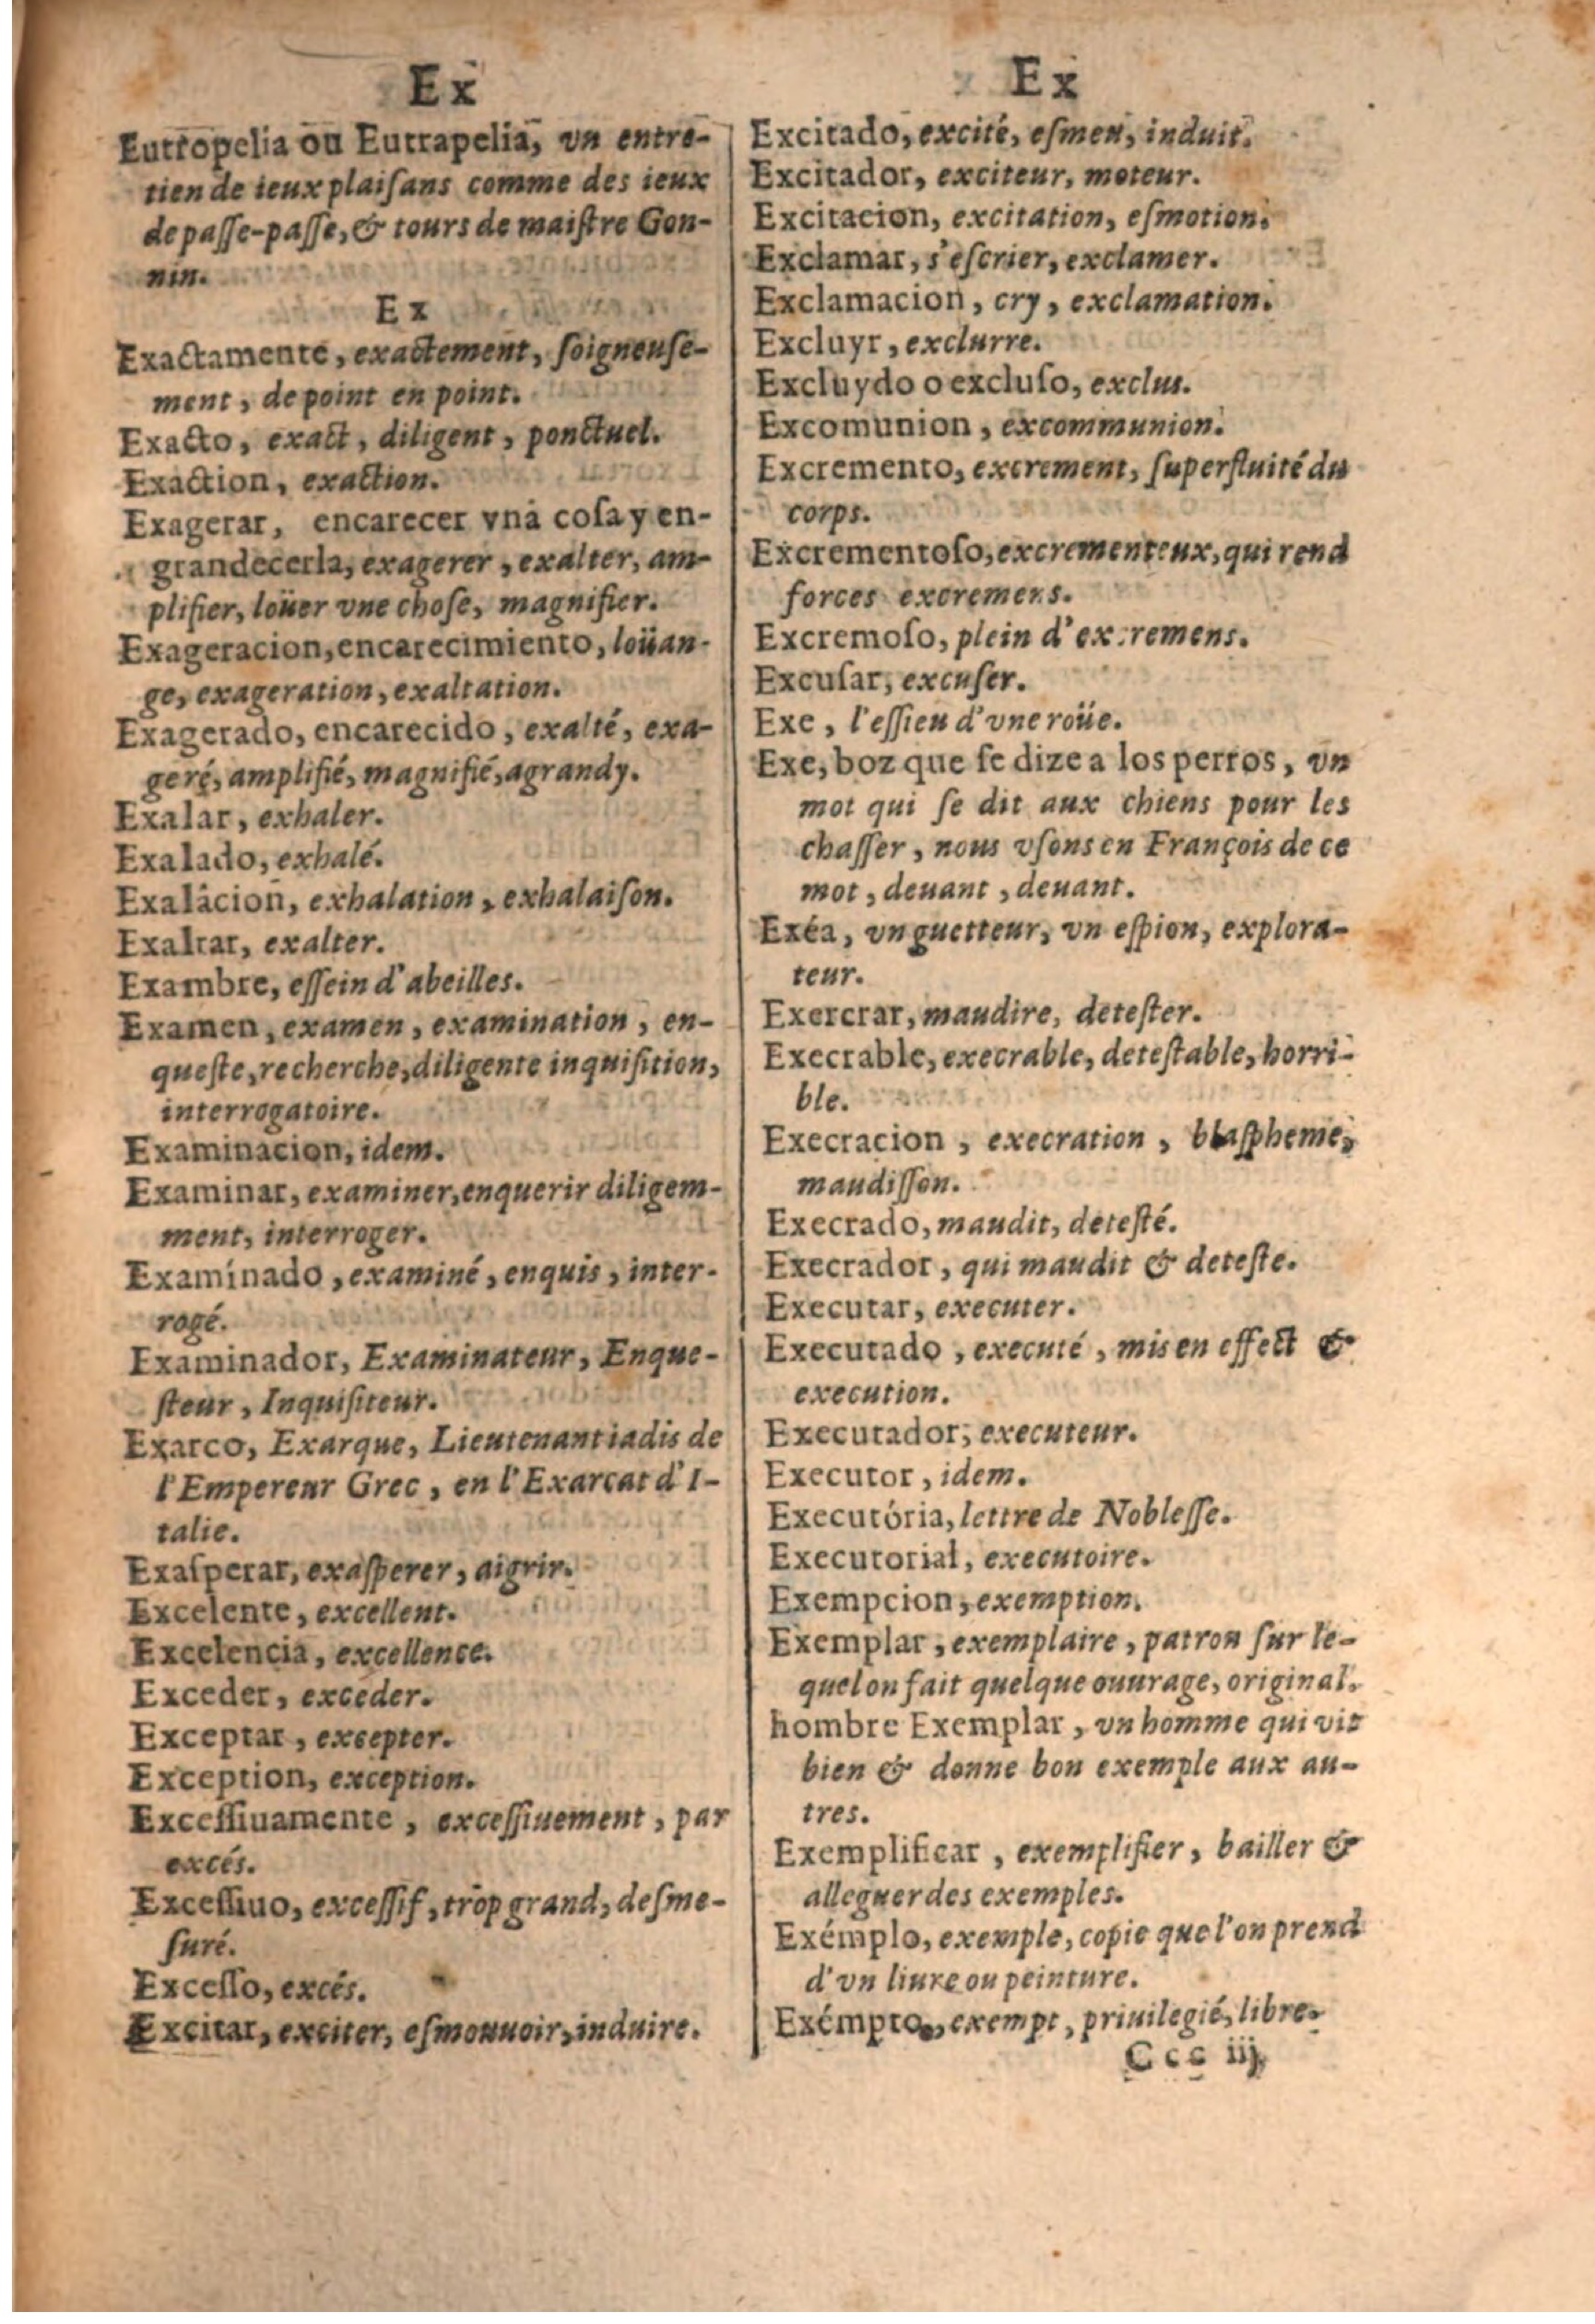 Ex
Eutropelia ou Eutrapelia, vn entre-
tien de ieux plaiſans comme des ieux
de paſſe-paſſe, & tours de maiſtre Gon-
nin.
Ex
Exactamente, exactement, ſoigneuſe-
ment, de point en point.
Exacto, exact, diligent, ponctuel.
Exaction, exaction.
Exagerar, encarecer vna coſa y en-
grandecerla, exagerer, exalter, am-
plifier, loüer vne choſe, magnifier.
Exageracion, encarecimiento, loüan-
ge, exageration, exaltation.
Exagerado, encarecido, exalté, exa-
geré, amplifié, magnifié, agrandy.
Exalar, exhaler.
Exalado, exhalé.
Exalacion, exhalation, exhalaiſon.
Exaltar, exalter.
Exambre, eſſein d'abeilles.
Examen, examen, examination, en-
queſte, recherche, diligente inquiſition,
interrogatoire.
Examinacion, idem.
Examinar, examiner, enquerir diligem-
ment, interroger.
Examínado, examiné, enquis, inter-
rogé.
Examinador, Examinateur, Enque-
ſteur, Inquiſiteur.
Exarco, Exarque, Lieutenant iadis de
l'Empereur Grec, en l'Exarcat d'I-
talie.
Exaſperar, exaſperer, aigrir.
Excelente, excellent.
Excelencia, excellence.
Exceder, exceder.
Exceptar, excepter.
Exception, exception.
Exceſſiuamente, exceſſiuement, par
excés.
Exceſſiuo, exceſſif, trop grand, deſme-
ſuré.
Exceſſo, excés.
Excitar, exciter, eſmouuoir, induire.
Ex
Excitado, excité, eſmeu, induit.
Excitador, exciteur, moteur.
Excitacion, excitation, eſmotion.
Exclamar, s'eſcrier, exclamer.
Exclamacion, cry, exclamation.
Excluyr, exclurre.
Excluydo o excluſo, exclus.
Excomunion, excommunion.
Excremento, excrement, ſuperfluité du
corps.
Excrementoſo, excrementeux, qui rend
forces excremens.
Excremoſo, plein d'excremens.
Excuſar, excuſer.
Exe, l'eſſieu d'vne roüe.
Exe, boz que ſe dize a los perros, vn
mot qui ſe dit aux chiens pour les
chaſſer, nous vſons en François de ce
mot, deuant, deuant.
Exéa, vn guetteur, vn eſpion, explora-
teur.
Exercrar, maudire, deteſter.
Execrable, execrable, deteſtable, horri-
ble.
Execracion, execration, blaſpheme,
maudiſſon.
Execrado, maudit, deteſté.
Execrador, qui maudit & deteſte.
Executar, executer.
Executado, executé, mis en effect &
execution.
Executador, executeur.
Executor, idem.
Executória, lettre de Nobleſſe.
Executorial, executoire.
Exempcion, exemption.
Exemplar, exemplaire, patron ſur le-
quel on fait quelque ouurage, original.
hombre Exemplar, vn homme qui vit
bien & donne bon exemple aux au-
tres.
Exemplificar, exemplifier, bailler &
alleguer des exemples.
Exémplo, exemple, copie que l'on prend
d'vn liure ou peinture.
Exémpto, exempt, priuilegié, libre.
Ccc iij